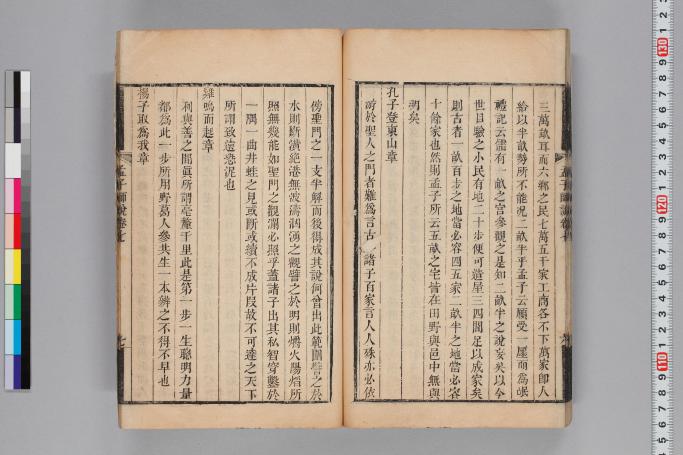 三萬畝耳而六鄉之民七萬五千家工商各不下萬家卽人
給以半畝勢所不能況二畝半乎孟子云願受一廛而為氓
禮記云儒有一畝之宮參觀之是知二畝半之說妄矣以今
世目驗之小民有地二十步便可造屋三四間足以成家矣
則古者一畝百步之地當必容四五家二畝半之地當必容
十餘家也然則孟子所云五畝之宅皆在田野與邑中無與
明矣
孔子登東山章
游於聖人之門者難為言古一諸子百家言人人殊亦必依
傍聖門之一支半解而後得成其說何曾出此範圍譬之於
水則斷潢絕港無波濤洶湧之觀譬之於明則爝火陽焰所
照無幾能如聖門之觀瀾必照乎蓋諸子出其私智穿鑿於
一隅一曲井蛙之見或斷或續不成片段故不可達之天下
所謂致遠恐泥也
雞鳴而起章
利與善之間眞所謂毫釐千里此是第一步一生聰明力量
都為此一步所用野葛人參共生一本辨之不得不早也
楊子取為我章
孟子師說卷七